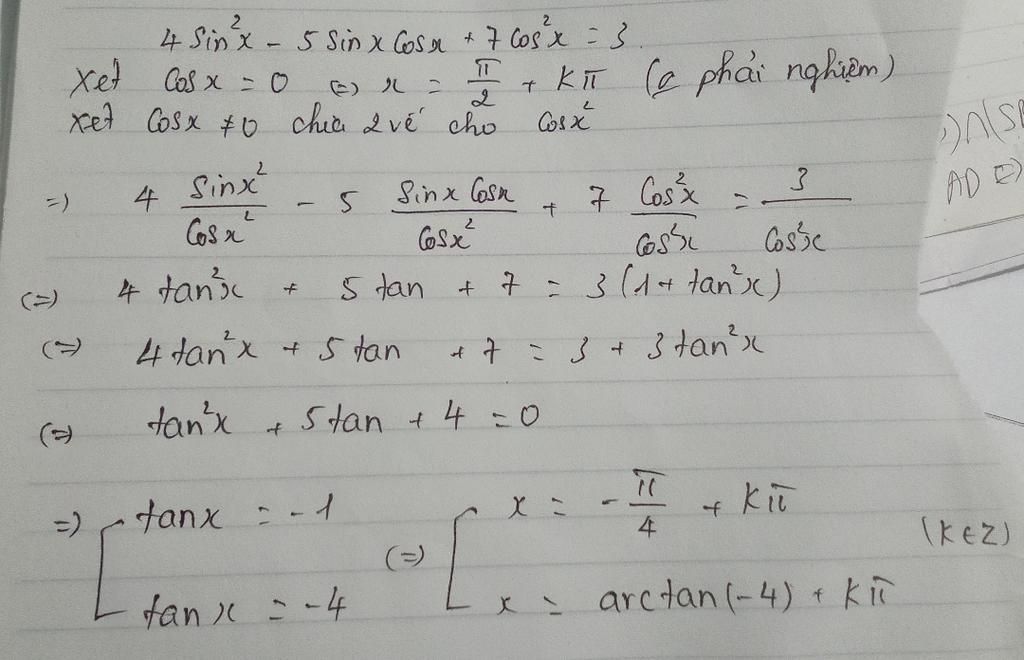 4 Sin²x - 5 Sin x Cos x + 7 Cos²x = 3
Xet Cos x = 0 (=) x = π/2 + Kπ (ko phải nghiệm)
xet Cosx ≠ 0 chia 2 vế cho Cosx²
=) 4 Sinx²/Cosx² - 5 Sinx Cosx/Cosx² + 7 Cos²x/Cos²x = 3/Cos²x
(=) 4 tan²x + 5 tan + 7 = 3 (1 + tan²x)
(=) 4 tan²x + 5 tan + 7 = 3 + 3 tan²x
(=) tan²x + 5 tan + 4 = 0
=) [ tanx = -1 (=) [ x = -π/4 + Kπ
tan x = -4 x = arctan(-4) + Kπ (K ∈ Z)
)∩(SB
AD (=)